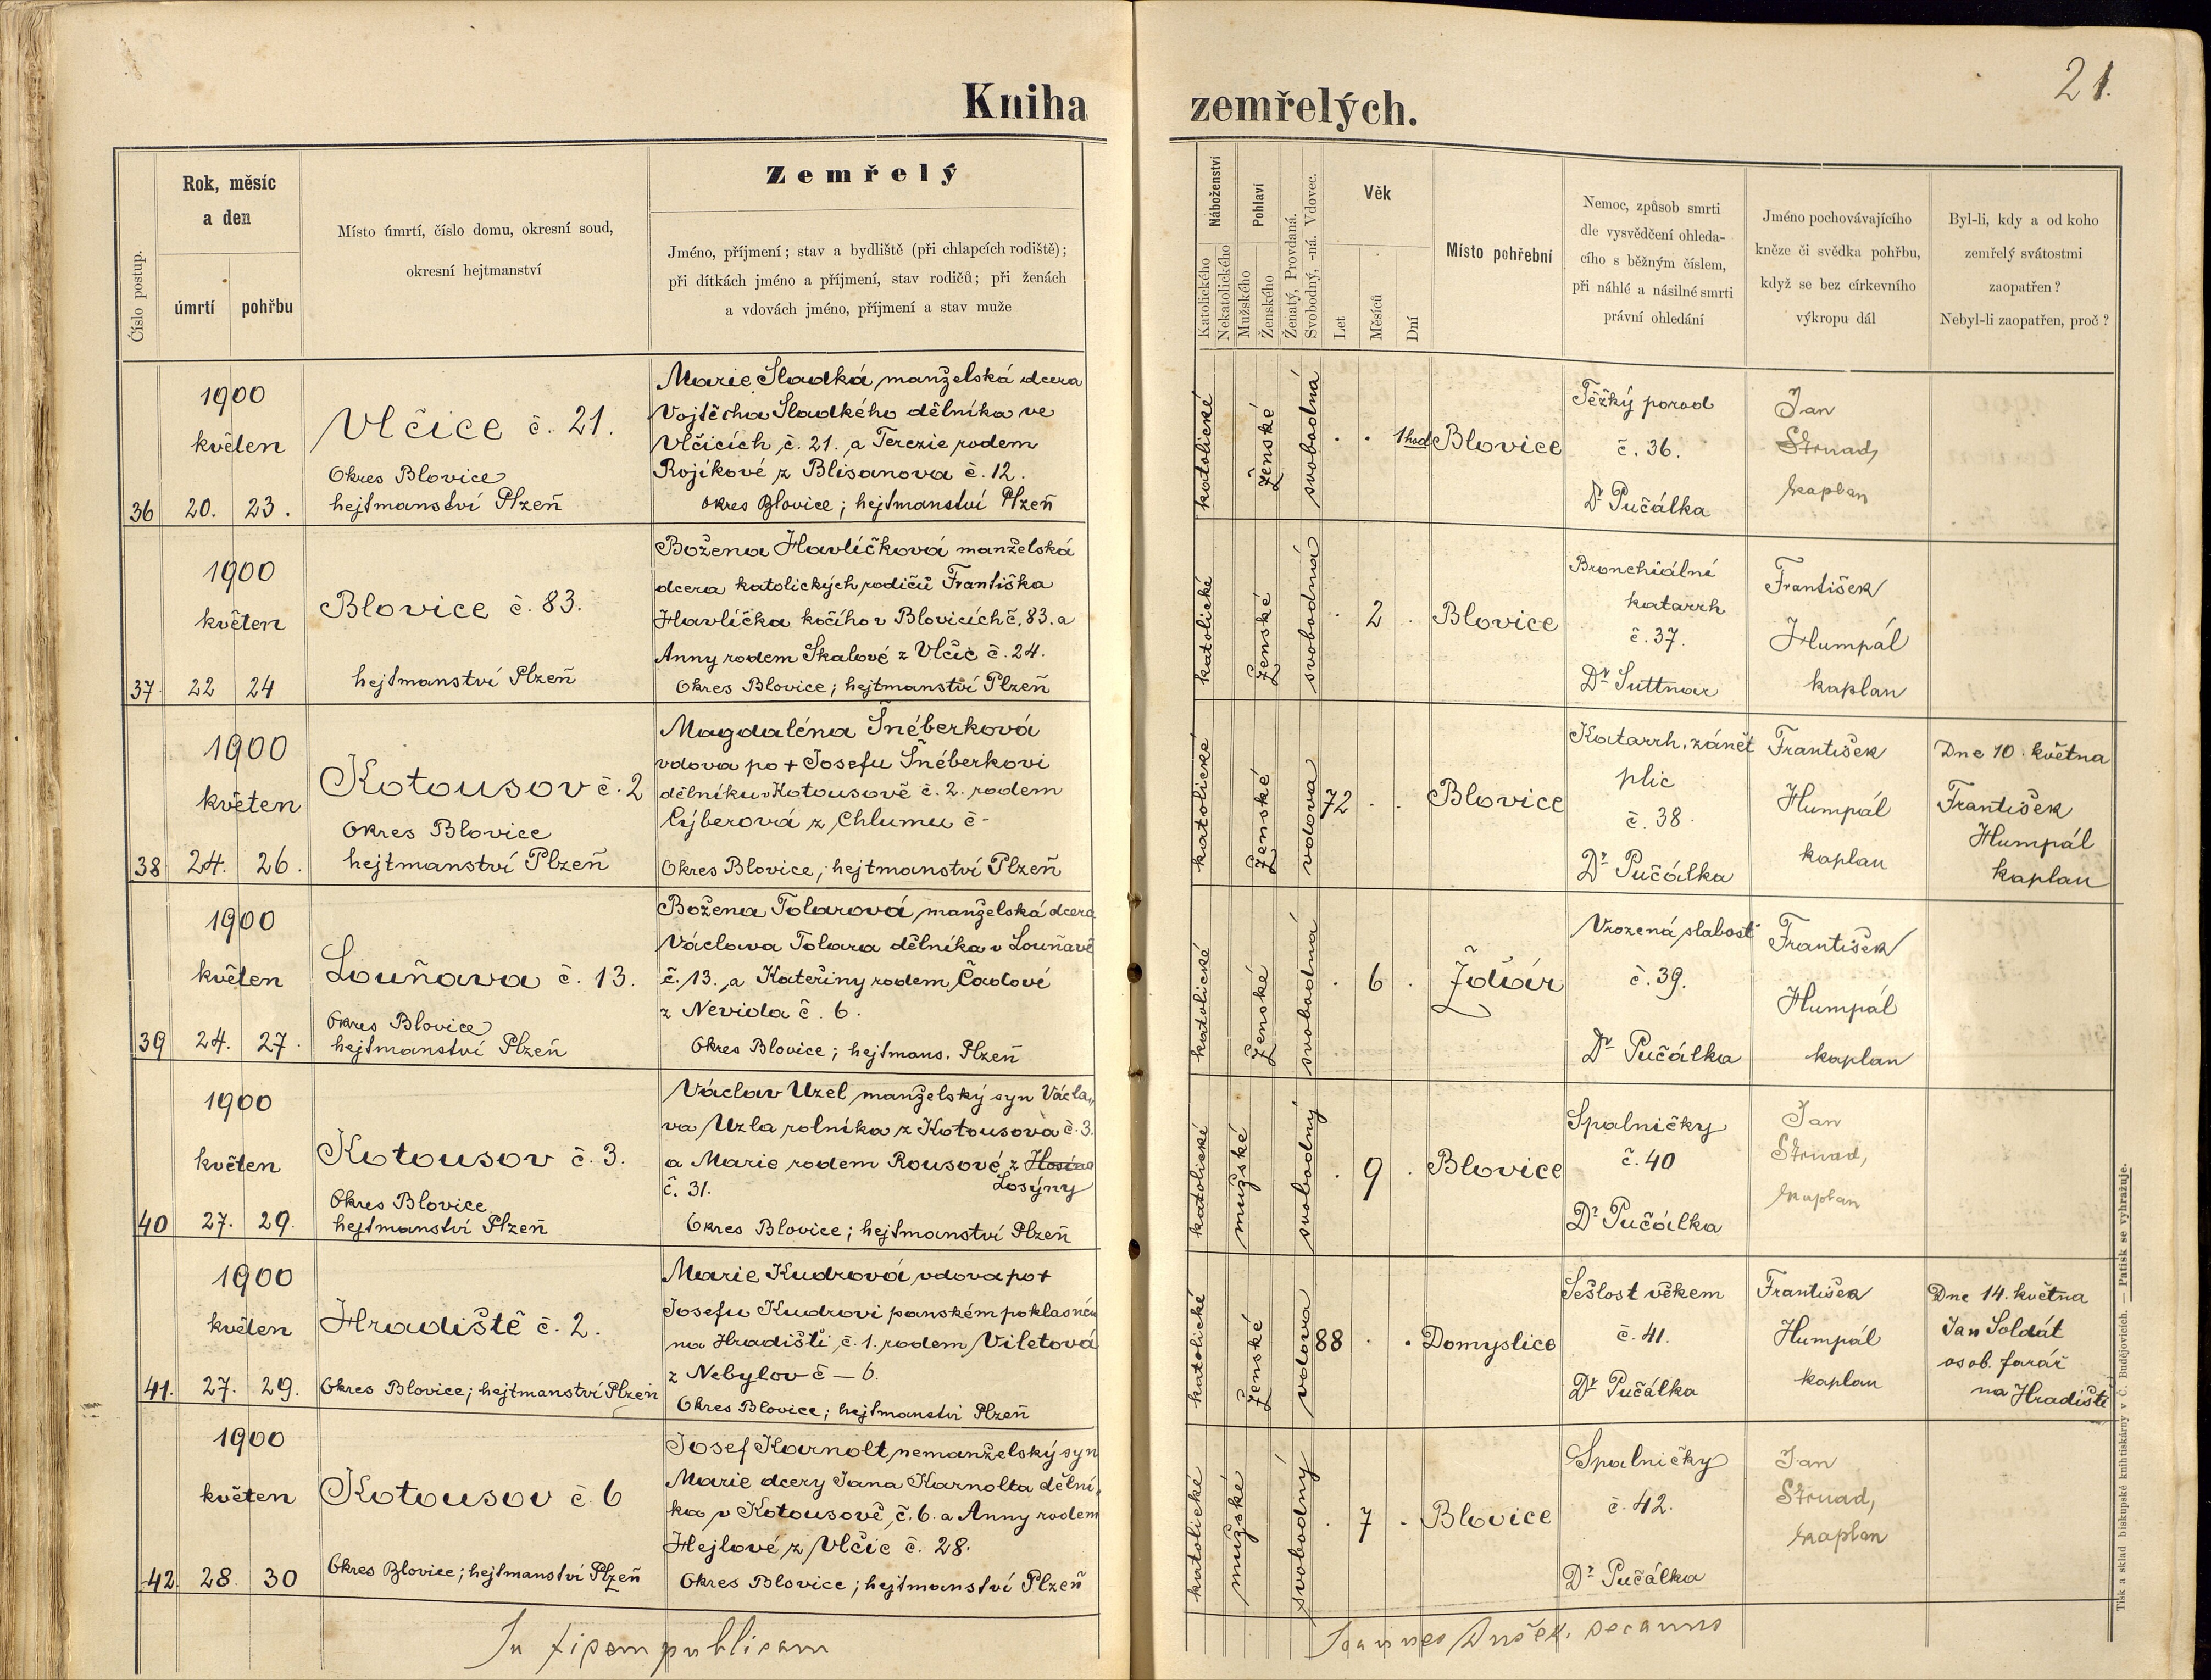 Kniha zemřelých.
21.
Číslo postup.
Rok, měsíc
a den
úmrtí
pohřbu
Místo úmrtí, číslo domu, okresní soud,
okresní hejtmanství
Zemřelý
Jméno, příjmení; stav a bydliště (při chlapcích rodiště);
při dítkách jméno a příjmení, stav rodičů; při ženách
a vdovách jméno, příjmení a stav muže
Náboženství
Katolického
Nekatolického
Pohlaví
Mužského
Ženského
Ženatý, Provdaná.
Svobodný, -ná. Vdovec.
Věk
Let
Měsíců
Dní
Místo pohřební
Nemoc, způsob smrti
dle vysvědčení ohleda-
cího s běžným číslem,
při náhlé a násilné smrti
právní ohledání
Jméno pochovávajícího
kněze či svědka pohřbu,
když se bez církevního
výkropu dál
Byl-li, kdy a od koho
zemřelý svátostmi
zaopatřen?
Nebyl-li zaopatřen, proč?
36
1900
květen
20. 23.
Vlčice č. 21.
Okres Blovice
hejtmanství Plzeň
Marie Sladká manželská dcera
Vojtěcha Sladkého dělníka ve
Vlčicích č. 21. a Terezie rodem
Rojíkové z Blisanova č. 12.
Okres Blovice; hejtmanství Plzeň
katolické
ženské
svobodná
1 hod
Blovice
Těžký porod
č. 36.
Dr Pučálka
Jan
Strnad,
kaplan
37.
1900
květen
22 24
Blovice č. 83.
hejtmanství Plzeň
Božena Havlíčková manželská
dcera katolických rodičů Františka
Havlíčka kočího v Blovicích č. 83. a
Anny rodem Skalové z Vlčic č. 24.
Okres Blovice; hejtmanství Plzeň
katolické
ženské
svobodná
2
Blovice
Bronchiální
katarrh
č. 37.
Dr Suttnar
František
Humpál
kaplan
38
1900
květen
24. 26.
Kotousov č. 2
Okres Blovice
hejtmanství Plzeň
Magdaléna Šnéberková
vdova po + Josefu Šnéberkovi
dělníku v Kotousově č. 2. rodem
Cýberová z Chlumu č -
Okres Blovice; hejtmanství Plzeň
katolické
ženské
vdova
72
Blovice
Katarrh. zánět
plic
č. 38.
Dr Pučálka
František
Humpál
kaplan
Dne 10. května
František
Humpál
kaplan
39
1900
květen
24. 27.
Louňava č. 13.
Okres Blovice
hejtmanství Plzeň
Božena Tolarová, manželská dcera
Václava Tolara dělníka v Louňavě
č. 13. a Kateřiny rodem Čadové
z Nevida č. 6.
Okres Blovice; hejtmans. Plzeň
katolické
ženské
svobodná
6
Ždár
Vrozená slabost
č. 39.
Dr Pučálka
František
Humpál
kaplan
40
1900
květen
27. 29.
Kotousov č. 3.
Okres Blovice
hejtmanství Plzeň
Václav Uzel, manželský syn Václa„
va Uzla rolníka z Kotousova č. 3.
a Marie rodem Rousové z
č. 31. Losýny
Okres Blovice; hejtmanství Plzeň
katolické
mužské
svobodný
9
Blovice
Spalničky
č. 40
Dr Pučálka
Jan
Strnad,
kaplan
41.
1900
květen
27. 29.
Hradiště č. 2.
Okres Blovice; hejtmanství Plzeň
Marie Kudrová vdova po +
Josefu Kudrovi panském poklasném
na Hradišti č. 1. rodem Viletová
z Nebylov č — 6.
Okres Blovice; hejtmanství Plzeň
katolické
ženské
vdova
88
Domyslice
Sešlost věkem
č. 41.
Dr Pučálka
František
Humpál
kaplan
Dne 14. května
Jan Soldát
osob. farář
na Hradišti
42.
1900
květen
28. 30
Kotousov č. 6
Okres Blovice; hejtmanství Plzeň
Josef Karnolt, nemanželský syn
Marie dcery Jana Karnolta dělní„
ka v Kotousově, č. 6. a Anny rodem
Hejlové z Vlčic č. 28.
Okres Blovice; hejtmanství Plzeň
katolické
mužské
svobodný
7
Blovice
Spalničky
č. 42.
Dr Pučálka
Jan
Strnad,
kaplan
In fidem publicam
Joannes Dušek, decanus
Tisk a sklad biskupské knihtiskárny v Č. Budějovicích. — Patisk se vyhražuje.